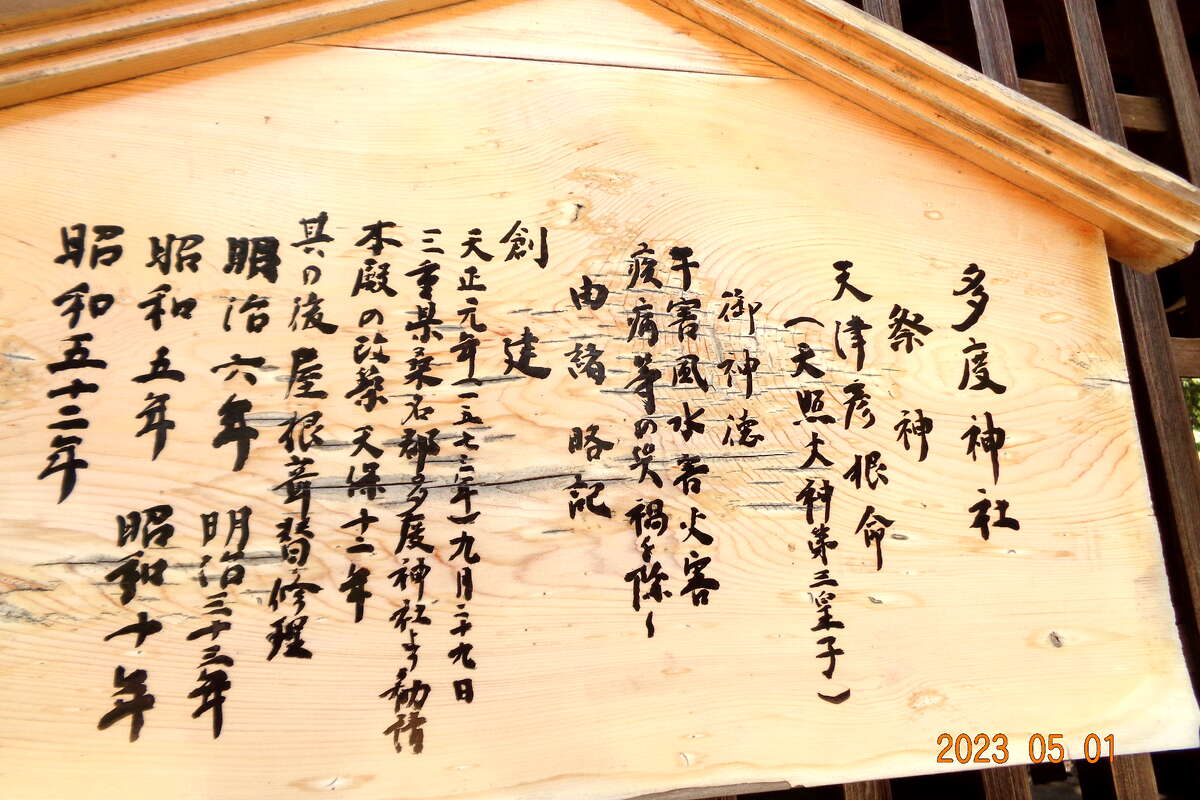 多度神社
祭神
天津彦根命
（天照大神第三皇子）
御神徳
干害風水害火害
疾病等の災禍を除く
由諸略記
創建
天正元年（一五七三年）九月二十九日
三重県桑名郡多度神社より勧請
本殿の改築天保十二年
其の後屋根葺替修理
明治六年　明治三十三年
昭和五年　昭和十年
昭和五十二年
2023 05 01